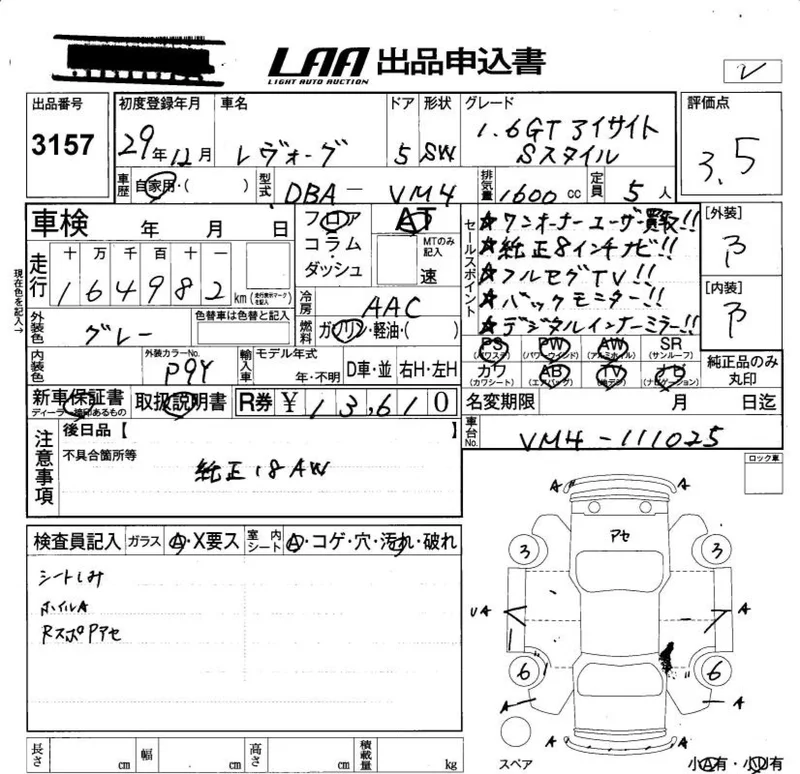 LAA 出品申込書
LIGHT AUTO AUCTION
出品番号 3157
初度登録年月 29年12月
車名 レヴォーグ
ドア 5 形状 SW
グレード 1.6GT アイサイト Sスタイル
評価点 3.5
車歴 自家用・( )
型式 DBA- VM4
排気量 1600cc
定員 5人
車検 年 月 日
フロア コラム・ダッシュ
AT MTのみ記入 速
セールスポイント
★ワンオーナーユーザー買取!!
★純正8インチナビ!!
★フルセグTV!!
★バックモニター!!
★デジタルインナーミラー!!
[外装]
[内装]
現在色を記入→
走行 十万千百十一
164982 km (走行表示マーク)記入
冷房 AAC
燃料 ガソリン・軽油・( )
外装色 グレー
色替車は色替と記入
内装色
外装カラーNo. P9Y
輸入車 モデル年式 年・不明 D車・並 右H・左H
PS (パワステ) PW (パワーウインド) AW (アルミホイル) SR (サンルーフ)
カワ (カワシート) AB (エアバッグ) TV (地デジ) ナビ (ナビゲーション)
純正品のみ丸印
新車保証書 ディーラー捺印あるもの
取扱説明書
R券 ¥13,610
名変期限 月 日迄
車台No. VM4-111025
注意事項
後日品【 】
不具合箇所等
純正18AW
ロック車
検査員記入 ガラス A・X要ス 室内シート A・コゲ・穴・汚れ・破れ
シートしみ
ホイルA
RスポPアセ
A A
アセ
3 3
UA A
6 6
A A
A A
スペア
小A有・小U有
長さ cm 幅 cm 高さ cm 積載量 kg